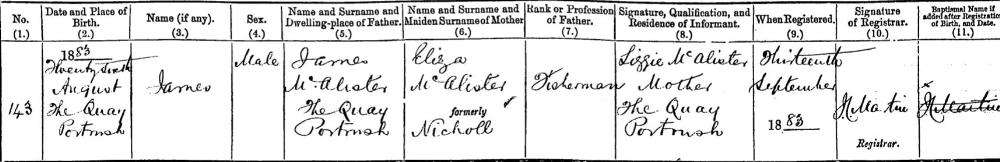 No.
(1.)
Date and Place of
Birth.
(2.)
Name (if any).
(3.)
Sex.
(4.)
Name and Surname and
Dwelling-place of Father.
(5.)
Name and Surname and
Maiden Surname of Mother
(6.)
Rank or Profession
of Father.
(7.)
Signature, Qualification, and
Residence of Informant.
(8.)
When Registered.
(9.)
Signature
of Registrar.
(10.)
Baptismal Name if
added after Registration
of Birth, and Date.
(11.)
143
1883
Twenty sixth
August
The Quay
Portrush
James
Male
James
McAlister
The Quay
Portrush
Eliza
McAlister
formerly
Nicholl
Fisherman
Lizzie McAlister
Mother
The Quay
Portrush
Thirteenth
September
1883
J. Martin
Registrar.
x
J. Martin